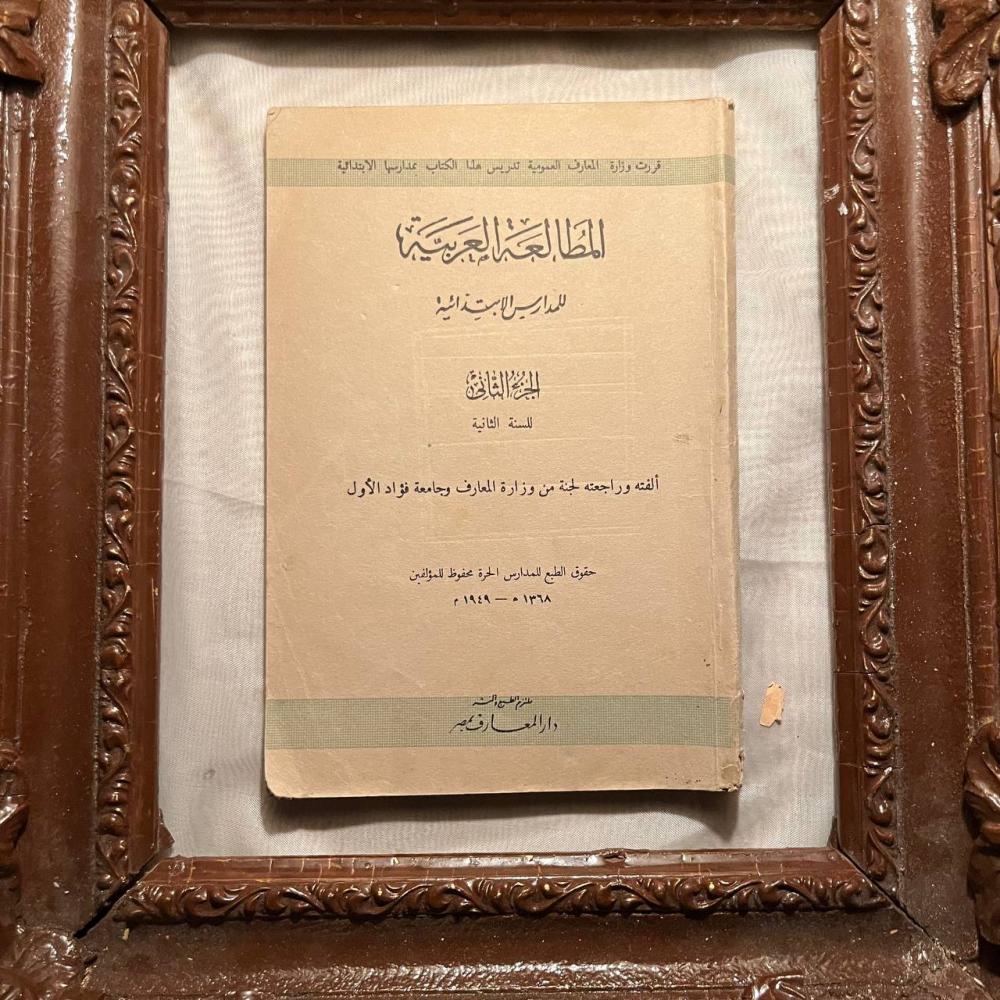 قررت وزارة المعارف العمومية تدريس هذا الكتاب بمدارسها الابتدائية
المُطالعَة العَربيَّة
للمدارس الابتدائية
الجزءُ الثاني
للسنة الثانية
ألفته وراجعته لجنة من وزارة المعارف وجامعة فؤاد الأول
حقوق الطبع للمدارس الحرة محفوظ للمؤلفين
١٣٦٨ ه — ١٩٤٩ م
ملتزم الطبع والنشر
دار المعارف بمصر